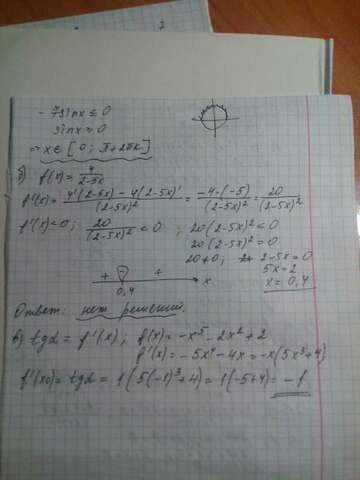 - 7sinx ≤ 0
sinx ≥ 0
x ∈ [0; π+2πk]
б) f(x) = 4/(2-5x)
f'(x) = (4'(2-5x) - 4(2-5x)')/(2-5x)² = (-4·(-5))/(2-5x)² = 20/(2-5x)²
f'(x)<0; 20/(2-5x)² < 0; 20(2-5x)² < 0
20(2-5x)² = 0
20≠0; 2-5x = 0
5x=2
x = 0,4
+ - + x
0,4
Ответ: нет решений.
в) tgα = f'(x); f(x) = -x⁵ - 2x² + 2
f'(x) = -5x⁴ - 4x = -x(5x³+4)
f'(x₀) = tgα = 1(5(-1)³+4) = 1(-5+4) = -1